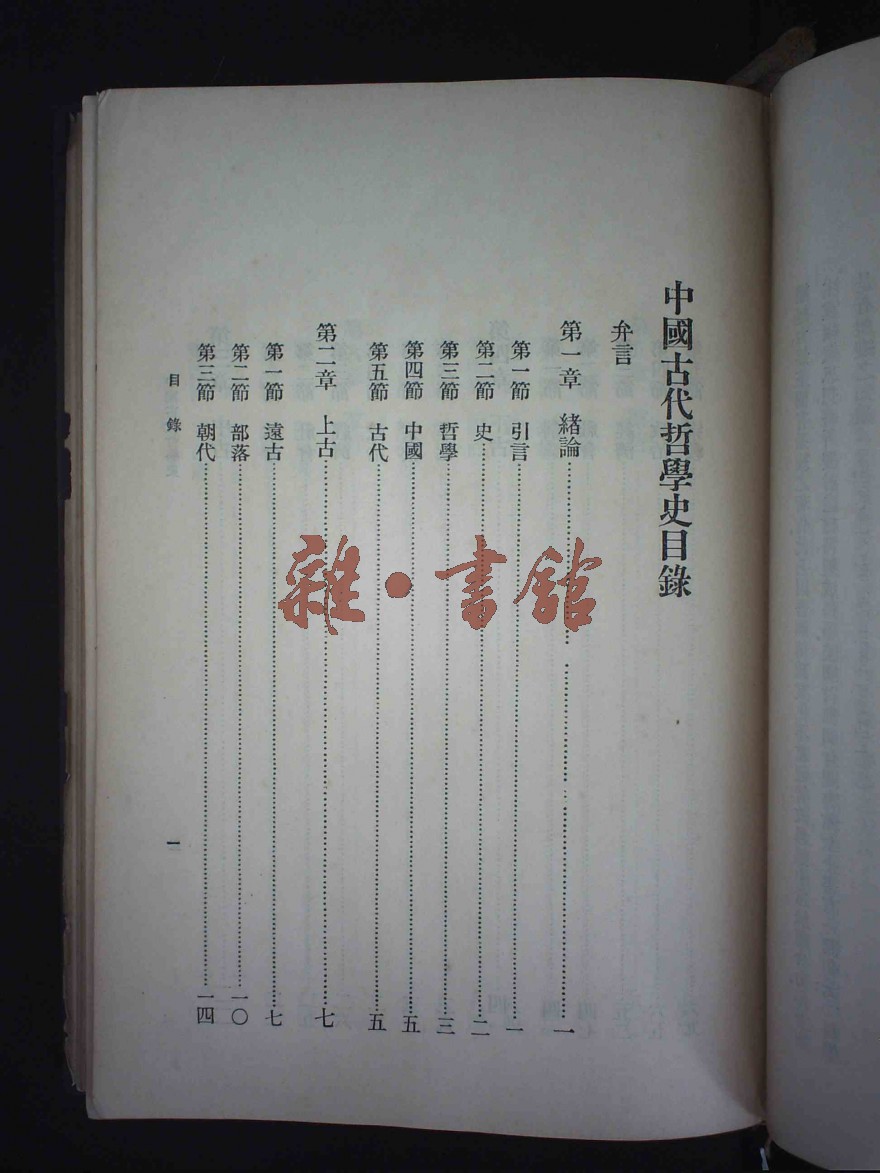 中國古代哲學史目錄
弁言
第一章　緒論……一
第一節　引言……一
第二節　史……二
第三節　哲學……三
第四節　中國……五
第五節　古代……五
第二章　上古……七
第一節　遠古……七
第二節　部落……一〇
第三節　朝代……一四
目錄
一
雜·書館